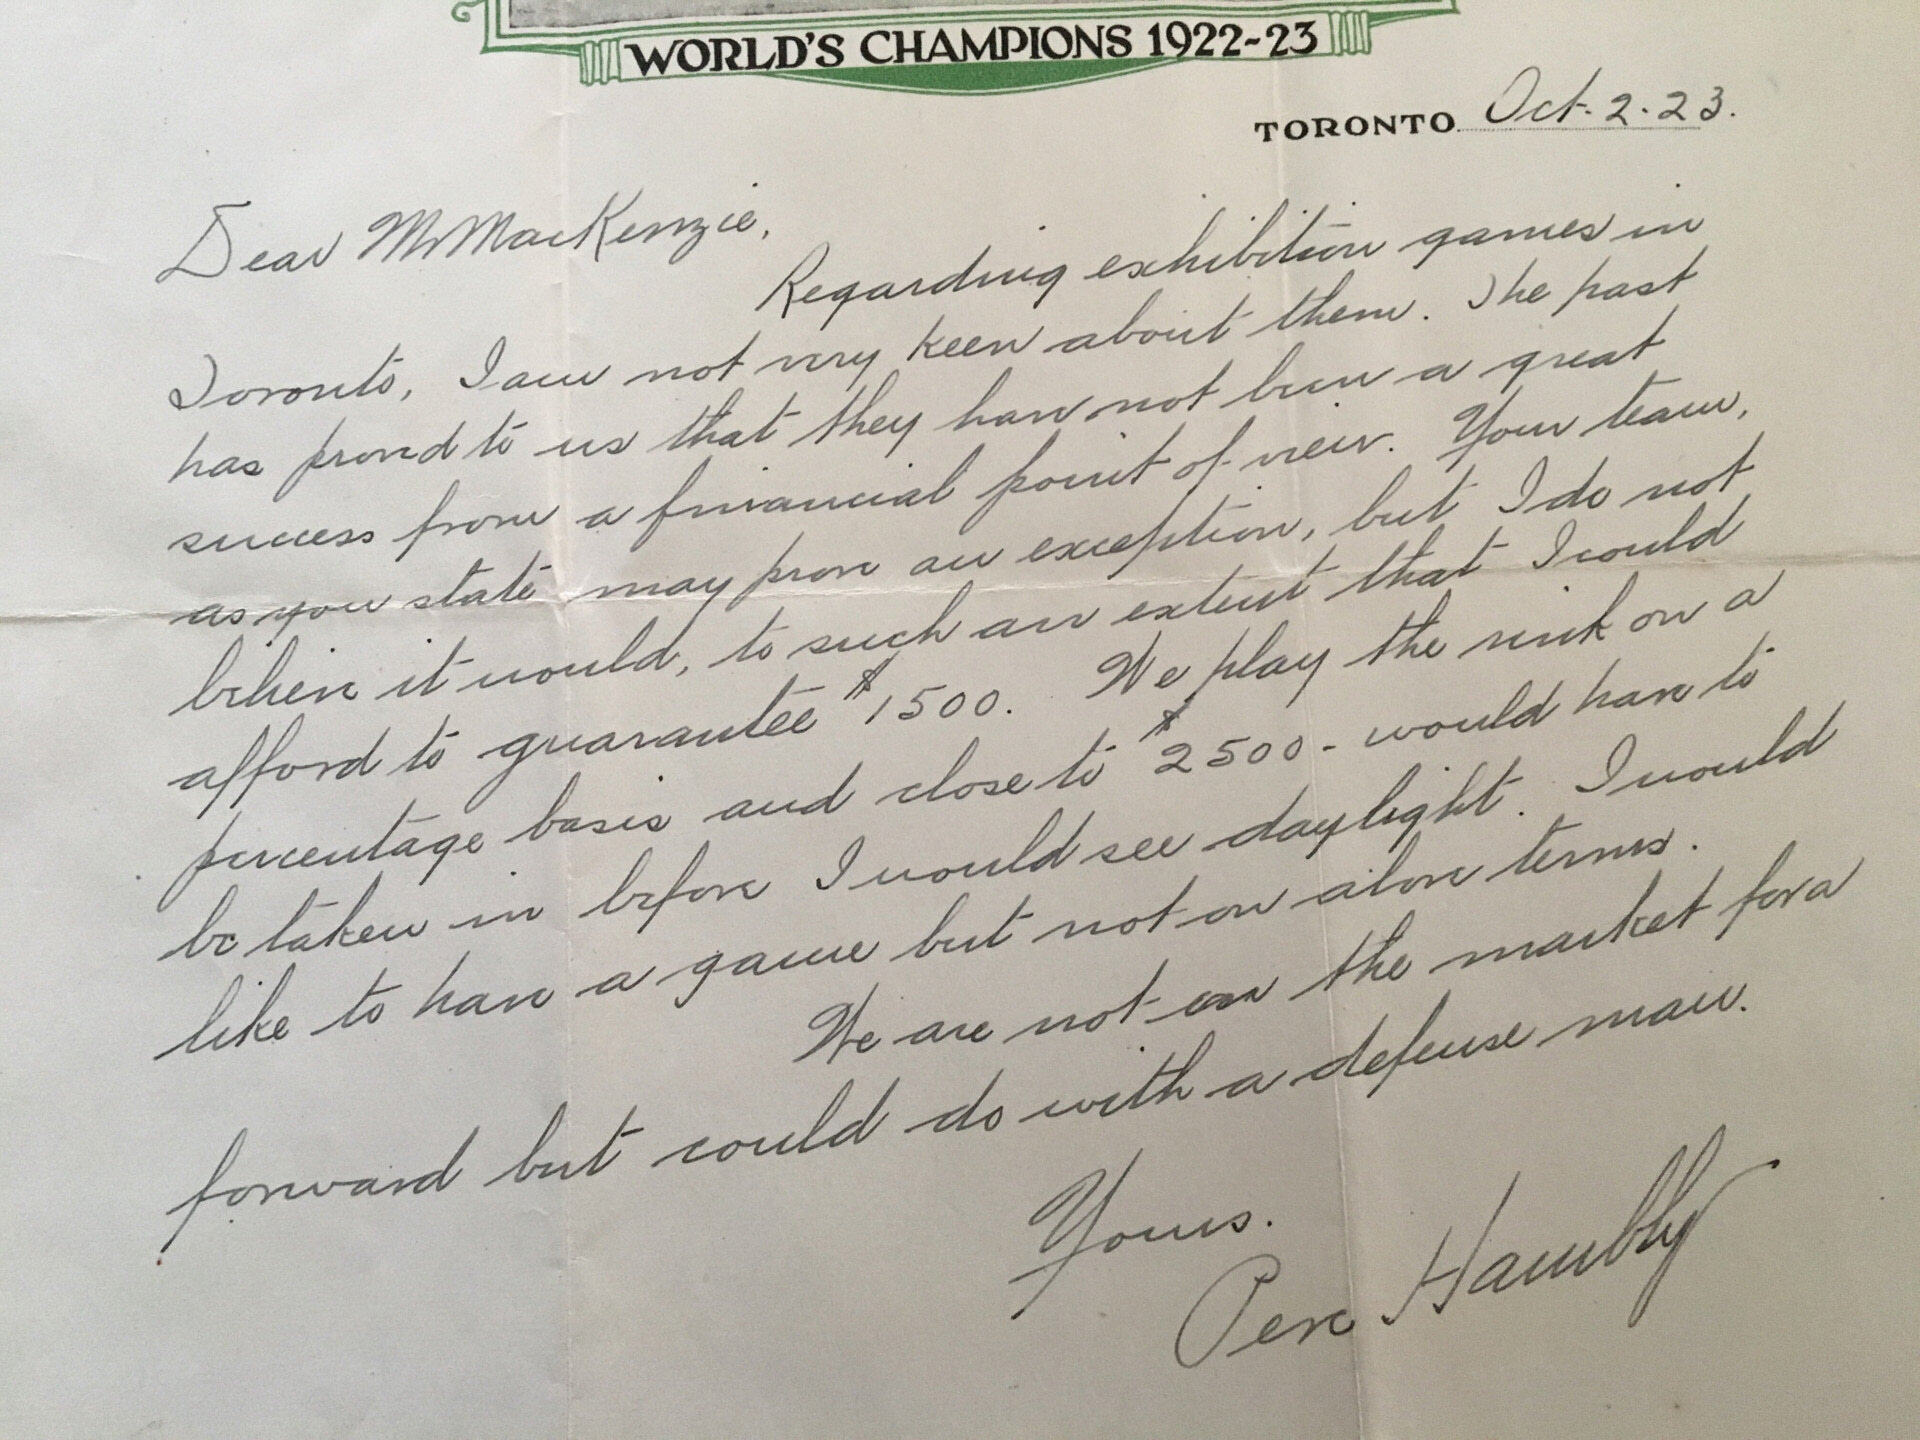 WORLD'S CHAMPIONS 1922-23
TORONTO Oct. 2. 23.
Dear Mr MacKenzie,
Regarding exhibition games in
Toronto, I am not very keen about them. The past
has proved to us that they have not been a great
success from a financial point of view. Your team,
as you state may prove an exception, but I do not
believe it would, to such an extent that I could
afford to guarantee $1500. We play the rink on a
percentage basis and close to $2500- would have to
be taken in before I would see daylight. I would
like to have a game but not on above terms.
We are not on the market for a
forward but could do with a defense man.
Yours.
Perc Hambly